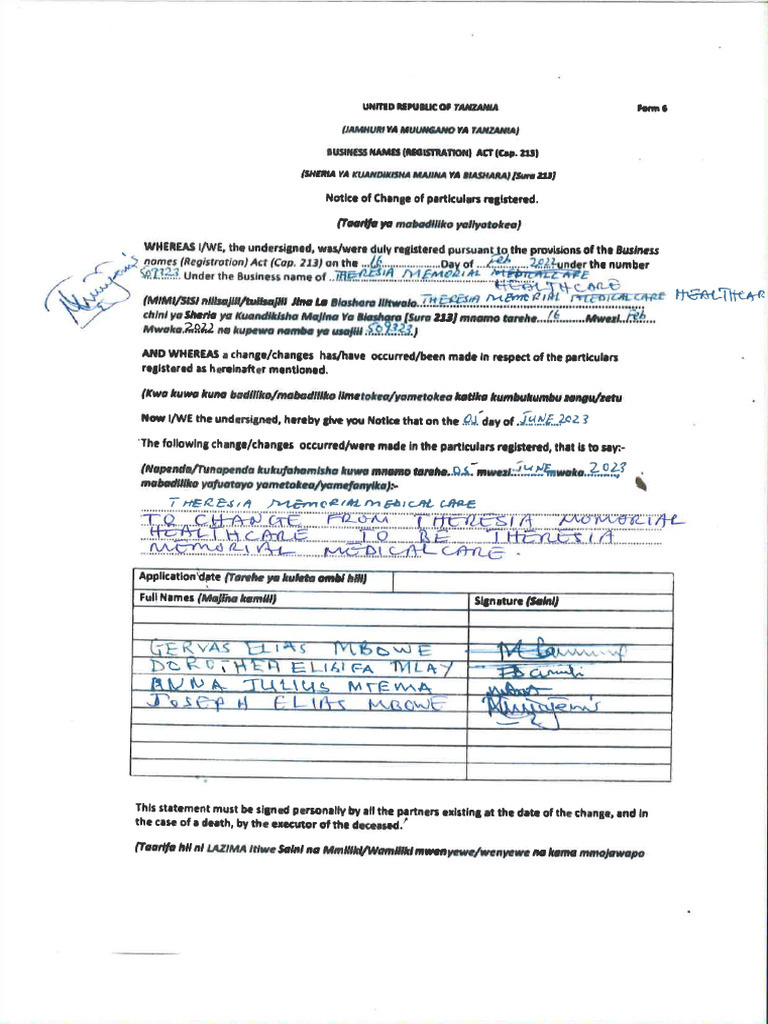 UNITED REPUBLIC OF TANZANIA Form 6
(JAMHURI YA MUUNGANO YA TANZANIA)
BUSINESS NAMES (REGISTRATION) ACT (Cap. 213)
(SHERIA YA KUANDIKISHA MAJINA YA BIASHARA) [Sura 213]
Notice of Change of particulars registered.
(Taarifa ya mabadiliko yaliyotokea)
WHEREAS I/WE, the undersigned, was/were duly registered pursuant to the provisions of the Business
names (Registration) Act (Cap. 213) on the ...16...Day of ...Feb...2022 under the number
509323. Under the Business name of ..THERESIA MEMORIAL MEDICALCARE
HEALTHCARE
(MIMI/SISI nilisajili/tulisajili Jina La Biashara liitwalo..THERESIA MEMORIAL MEDICALCARE HEALTHCAR
chini ya Sheria ya Kuandikisha Majina Ya Biashara [Sura 213] mnamo tarehe...16...Mwezi...Feb...
Mwaka.2022 na kupewa namba ya usajili 509323.)
AND WHEREAS a change/changes has/have occurred/been made in respect of the particulars
registered as hereinafter mentioned.
(Kwa kuwa kuna badiliko/mabadiliko limetokea/yametokea katika kumbukumbu zangu/zetu
Now I/WE the undersigned, hereby give you Notice that on the .05. day of .JUNE 2023
The following change/changes occurred/were made in the particulars registered, that is to say:-
(Napenda/Tunapenda kukufahamisha kuwa mnamo tarehe..05..mwezi..JUNE..mwaka..2023
mabadiliko yafuatayo yametokea/yamefanyika):-
THERESIA MEMORIAL MEDICAL CARE
TO CHANGE FROM THERESIA MOMORIAL
HEALTHCARE TO BE THERESIA
MEMORIAL MEDICALCARE.
Application date (Tarehe ya kuleta ombi hili)
Full Names (Majina kamili) Signature (Saini)
GERVAS ELIAS MBOWE
DOROTHEA ELISIFA MLAY
ANNA JULIUS MTEMA
JOSEPH ELIAS MBOWE
This statement must be signed personally by all the partners existing at the date of the change, and in
the case of a death, by the executor of the deceased.
(Taarifa hii ni LAZIMA itiwe Saini na Mmiliki/Wamiliki mwenyewe/wenyewe na kama mmojawapo